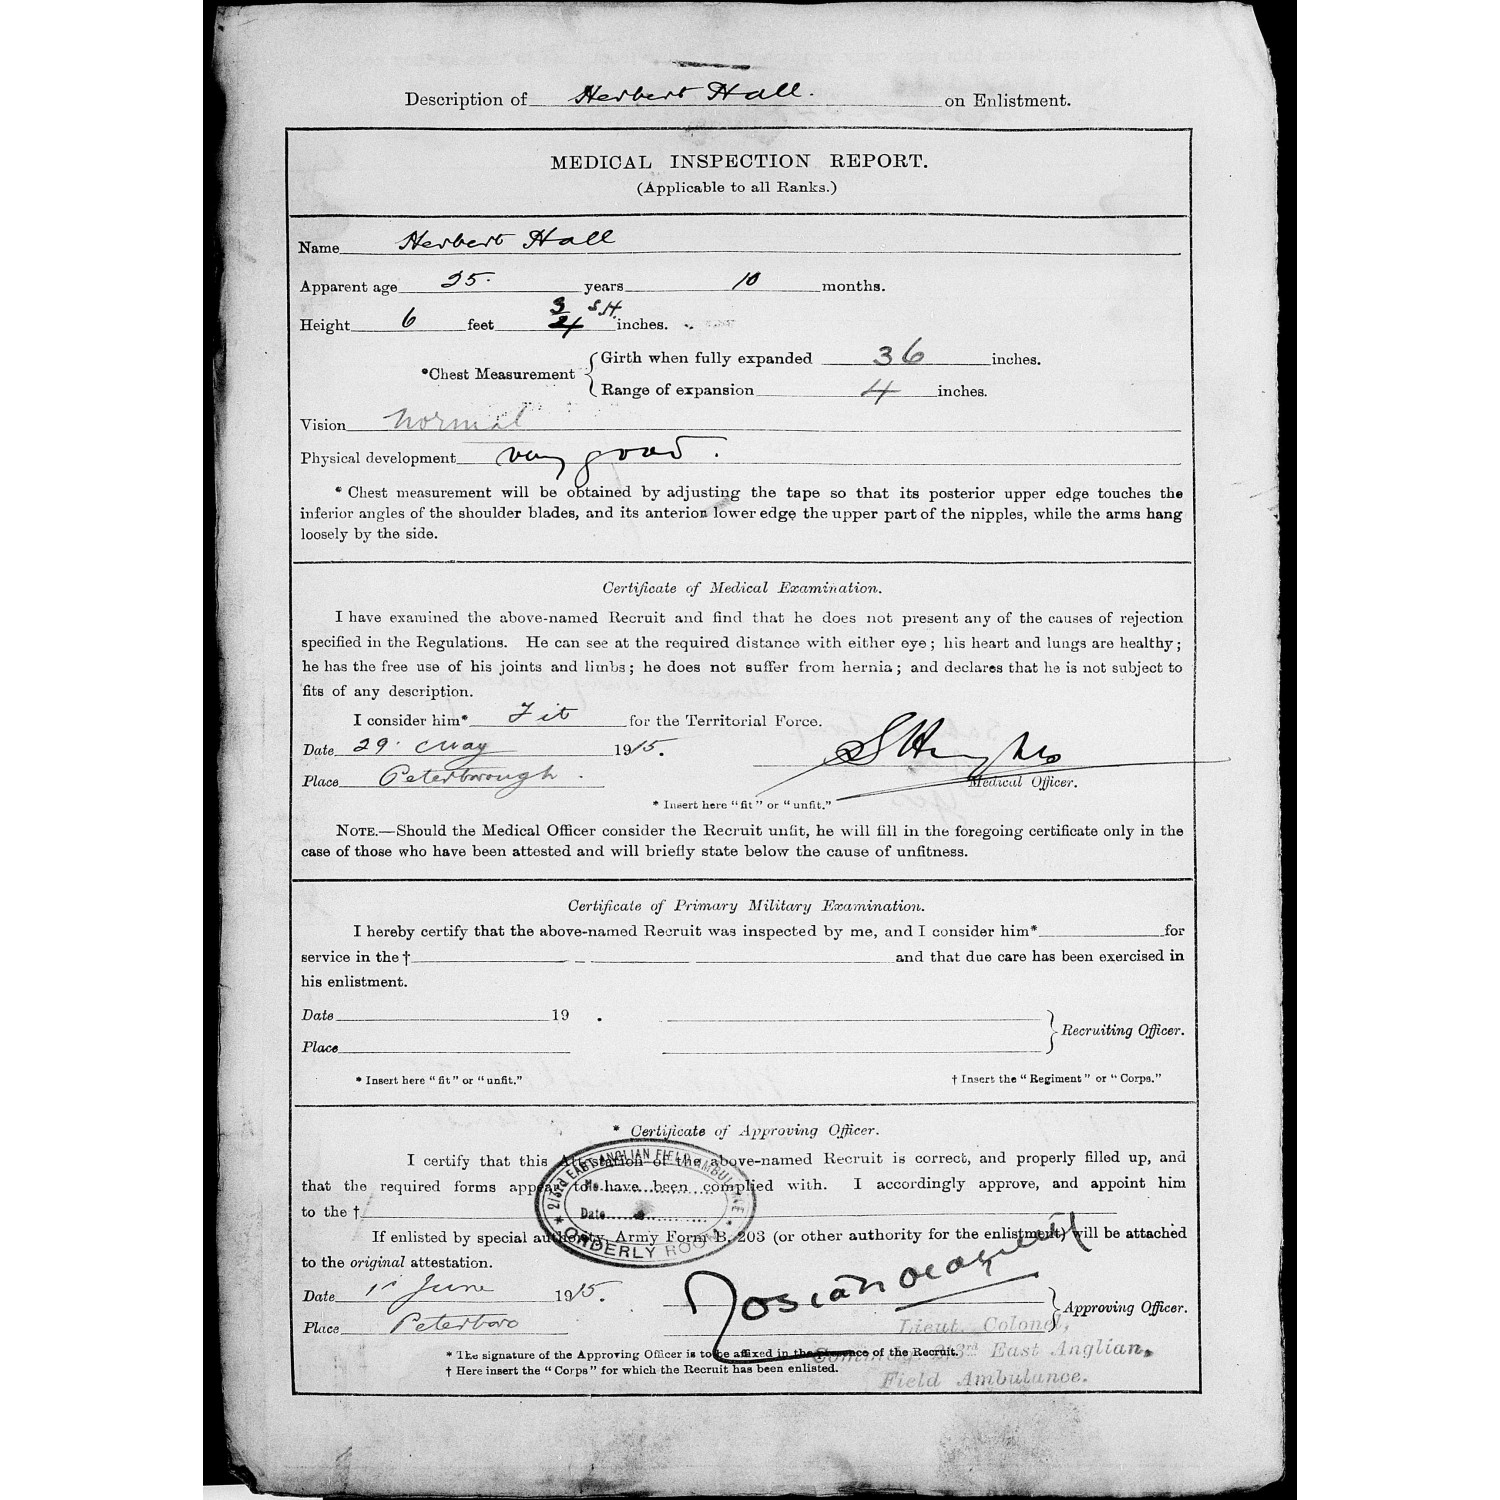 Description of Herbert Hall. on Enlistment.
MEDICAL INSPECTION REPORT.
(Applicable to all Ranks.)
Name Herbert Hall
Apparent age 25. years 10 months.
Height 6 feet 3/4 S.H. inches.
*Chest Measurement { Girth when fully expanded 36 inches.
Range of expansion 4 inches.
Vision normal
Physical development very good.
* Chest measurement will be obtained by adjusting the tape so that its posterior upper edge touches the
inferior angles of the shoulder blades, and its anterior lower edge the upper part of the nipples, while the arms hang
loosely by the side.
Certificate of Medical Examination.
I have examined the above-named Recruit and find that he does not present any of the causes of rejection
specified in the Regulations. He can see at the required distance with either eye; his heart and lungs are healthy;
he has the free use of his joints and limbs; he does not suffer from hernia; and declares that he is not subject to
fits of any description.
I consider him* Fit for the Territorial Force.
Date 29. May 1915.
Place Peterborough.
Medical Officer.
* Insert here "fit" or "unfit."
NOTE.—Should the Medical Officer consider the Recruit unfit, he will fill in the foregoing certificate only in the
case of those who have been attested and will briefly state below the cause of unfitness.
Certificate of Primary Military Examination.
I hereby certify that the above-named Recruit was inspected by me, and I consider him* for
service in the † and that due care has been exercised in
his enlistment.
Date 19 .
} Recruiting Officer.
Place
* Insert here "fit" or "unfit." † Insert the "Regiment" or "Corps."
* Certificate of Approving Officer.
I certify that this Attestation of the above-named Recruit is correct, and properly filled up, and
that the required forms appear to have been complied with. I accordingly approve, and appoint him
to the †
2/3rd EAST ANGLIAN FIELD AMBULANCE
No.
Date
ORDERLY ROOM
If enlisted by special authority, Army Form B. 203 (or other authority for the enlistment) will be attached
to the original attestation.
Date 1st June 1915.
} Approving Officer.
Place Peterboro
Lieut. Colonel,
Commdg. 2/3rd East Anglian,
Field Ambulance.
* The signature of the Approving Officer is to be affixed in the presence of the Recruit.
† Here insert the "Corps" for which the Recruit has been enlisted.